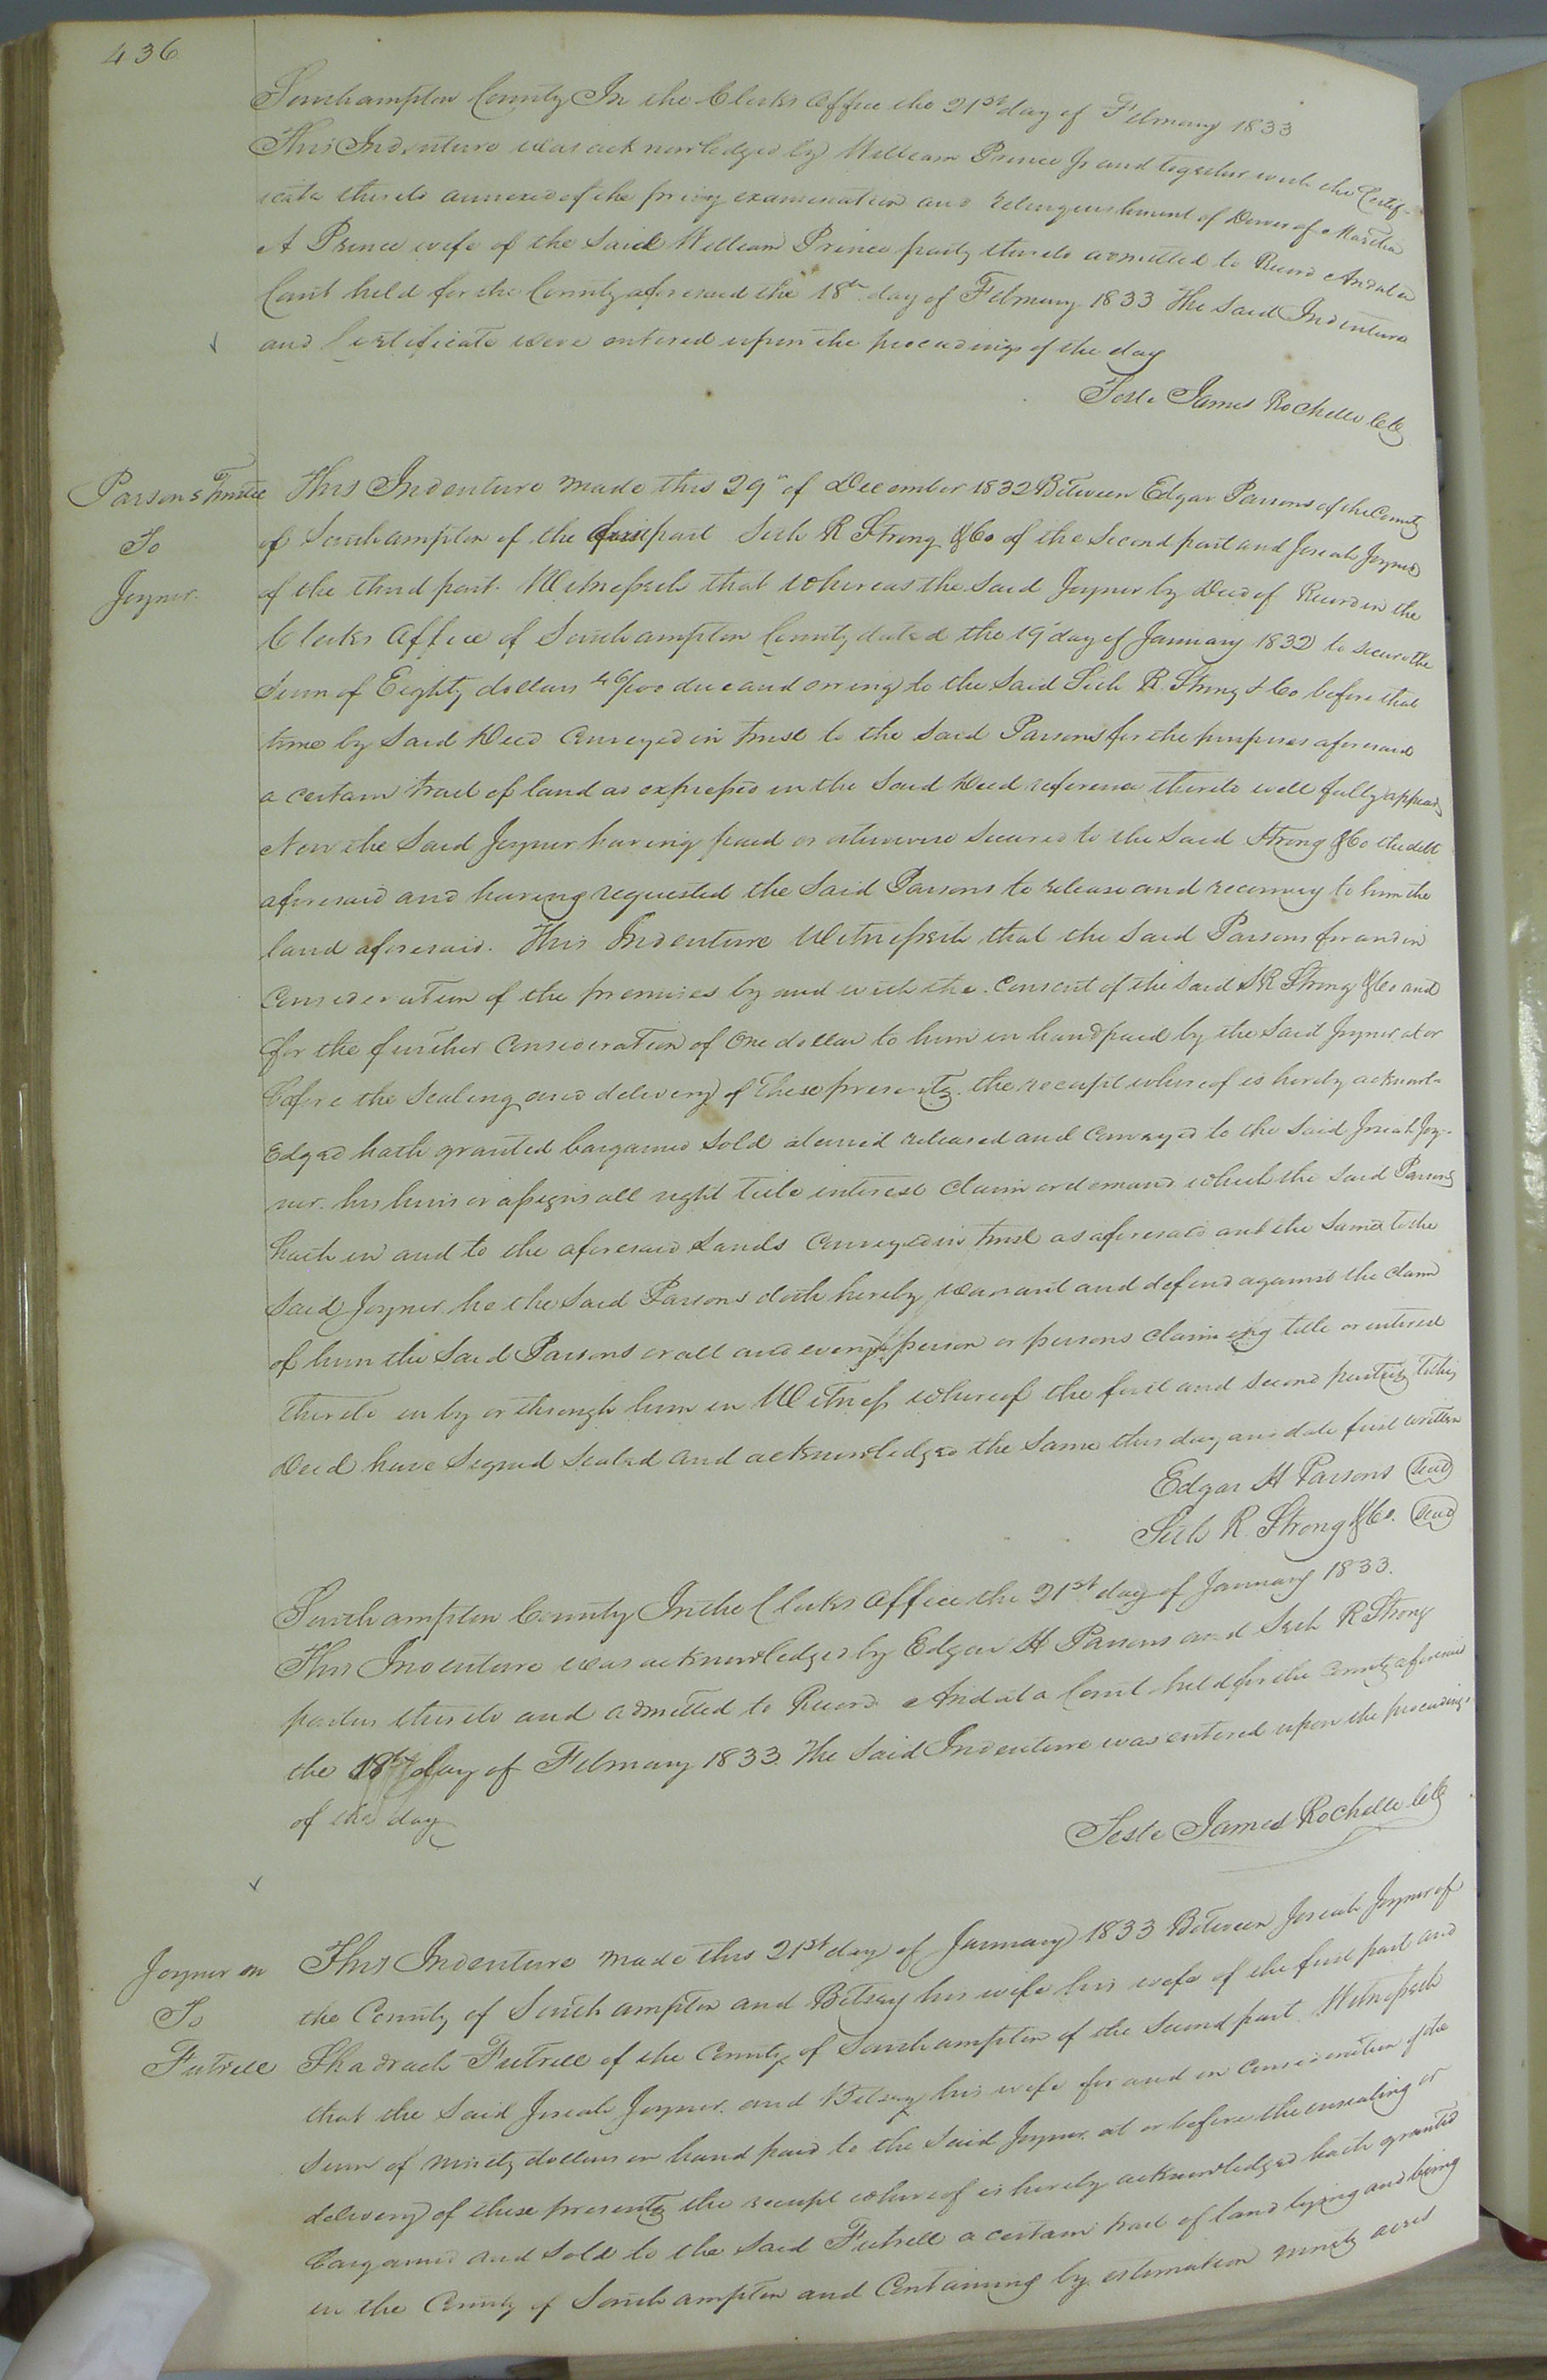 436
Southampton County In the Clerks Office the 21st day of February 1833
This Indenture was acknowledged by William Prince Jr and together with the Certif-
icate thereto annexed of the privy examination and relinquishment of Dower of Martha
A Prince wife of the said William Prince party thereto admitted to Record And at a
Court held for the County aforesaid the 18th day of February 1833 The said Indenture
and Certificate were entered upon the proceedings of the day
Teste James Rochelle CC
Parsons Trustee
To
Joyner.
This Indenture made this 29th of December 1832 Between Edgar Parsons of the County
of Southampton of the first part Seth R Strong & Co of the second part and Josiah Joyner
of the third part. Witnesseth that whereas the said Joyner by Deed of Record in the
Clerks Office of Southampton County dated the 19 day of January 1832 to secure the
sum of Eighty dollars 46/100 due and owing to the said Seth R. Strong & Co before that
time by said Deed Conveyed in trust to the said Parsons for the purposes aforesaid
a certain tract of land as expressed in the said Deed reference thereto will fully appear
Now the said Joyner having paid or otherwise secured to the said Strong & Co the debt
aforesaid and having requested the said Parsons to release and reconvey to him the
land aforesaid. This Indenture Witnesseth that the said Parsons for and in
Consideration of the premises by and with the consent of the said S R Strong & Co and
for the further Consideration of One dollar to him in hand paid by the said Joyner at or
before the sealing and delivery of these presents the receipt whereof is hereby acknowl-
edged hath granted bargained sold aliened released and Conveyed to the said Josiah Joy-
ner his heirs or assigns all right title interest claim or demand which the said Parsons
hath in and to the aforesaid Lands Conveyed in trust as aforesaid and the same to the
said Joyner he the said Parsons doth hereby warrant and defend against the claim
of him the said Parsons or all and every person or persons claiming title or interest
thereto in by or through him in Witness whereof the first and second parties to this
Deed have signed sealed and acknowledged the same this day and date first written
Edgar H Parsons Seal
Seth R. Strong & Co. Seal
Southampton County In the Clerks Office the 21st day of January 1833.
This Indenture was acknowledged by Edgar H Parsons and Seth R Strong
parties thereto and admitted to Record And at a Court held for the County aforesaid
the 18th day of February 1833. The said Indenture was entered upon the proceedings
of the day
Teste James Rochelle CC
Joyner
To
Futrell
This Indenture made this 21st day of January 1833 Between Josiah Joyner of
the County of Southampton and Betsey his wife his wife of the first part and
Shadrach Futrell of the County of Southampton of the second part Witnesseth
that the said Josiah Joyner and Betsey his wife for and in consideration of the
sum of ninety dollars in hand paid to the said Joyner at or before the ensealing or
delivery of these presents the receipt whereof is hereby acknowledged hath granted
bargained and sold to the said Futrell a certain tract of land lying and being
in the County of Southampton and Containing by estimation ninety acres